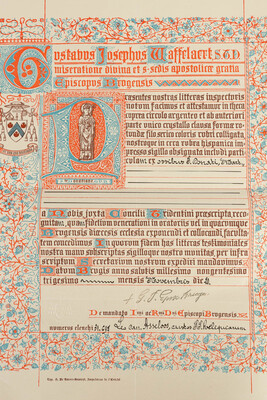 Gustavus Josephus Waffelaert S.T.D.
miseratione divina et s. sedis apostolicæ gratia
Episcopus Brugensis
Præsentes nostras litteras inspecturis
notum facimus et attestamur in theca
cuprea circulo argenteo et ab anteriori
parte unico crystallo clausa formæ ro-
tundæ filo serico coloris rubri colligata
nostroque in cera rubra hispanica im-
pressa sigillo obsignata includi parti-
culam ex ossibus S. Donati,
a Nobis juxta Concilii Tridentini præscripta, reco-
gnitam, quam fidelium venerationi in oratoriis ac in quacunque
Brugensis diœcesis ecclesia exponendi et collocandi, faculta-
tem concedimus. In quorum fidem has litteras testimoniales
nostra manu subscriptas sigilloque nostro munitas per infra-
scriptum Secretarium nostrum expediri mandavimus.
Datum Brugis anno salutis millesimo nongentesimo
trigesimo mensis Novembris die
De mandato Ill. ac Rev. D. Episcopi Brugensis
numerus elenchi